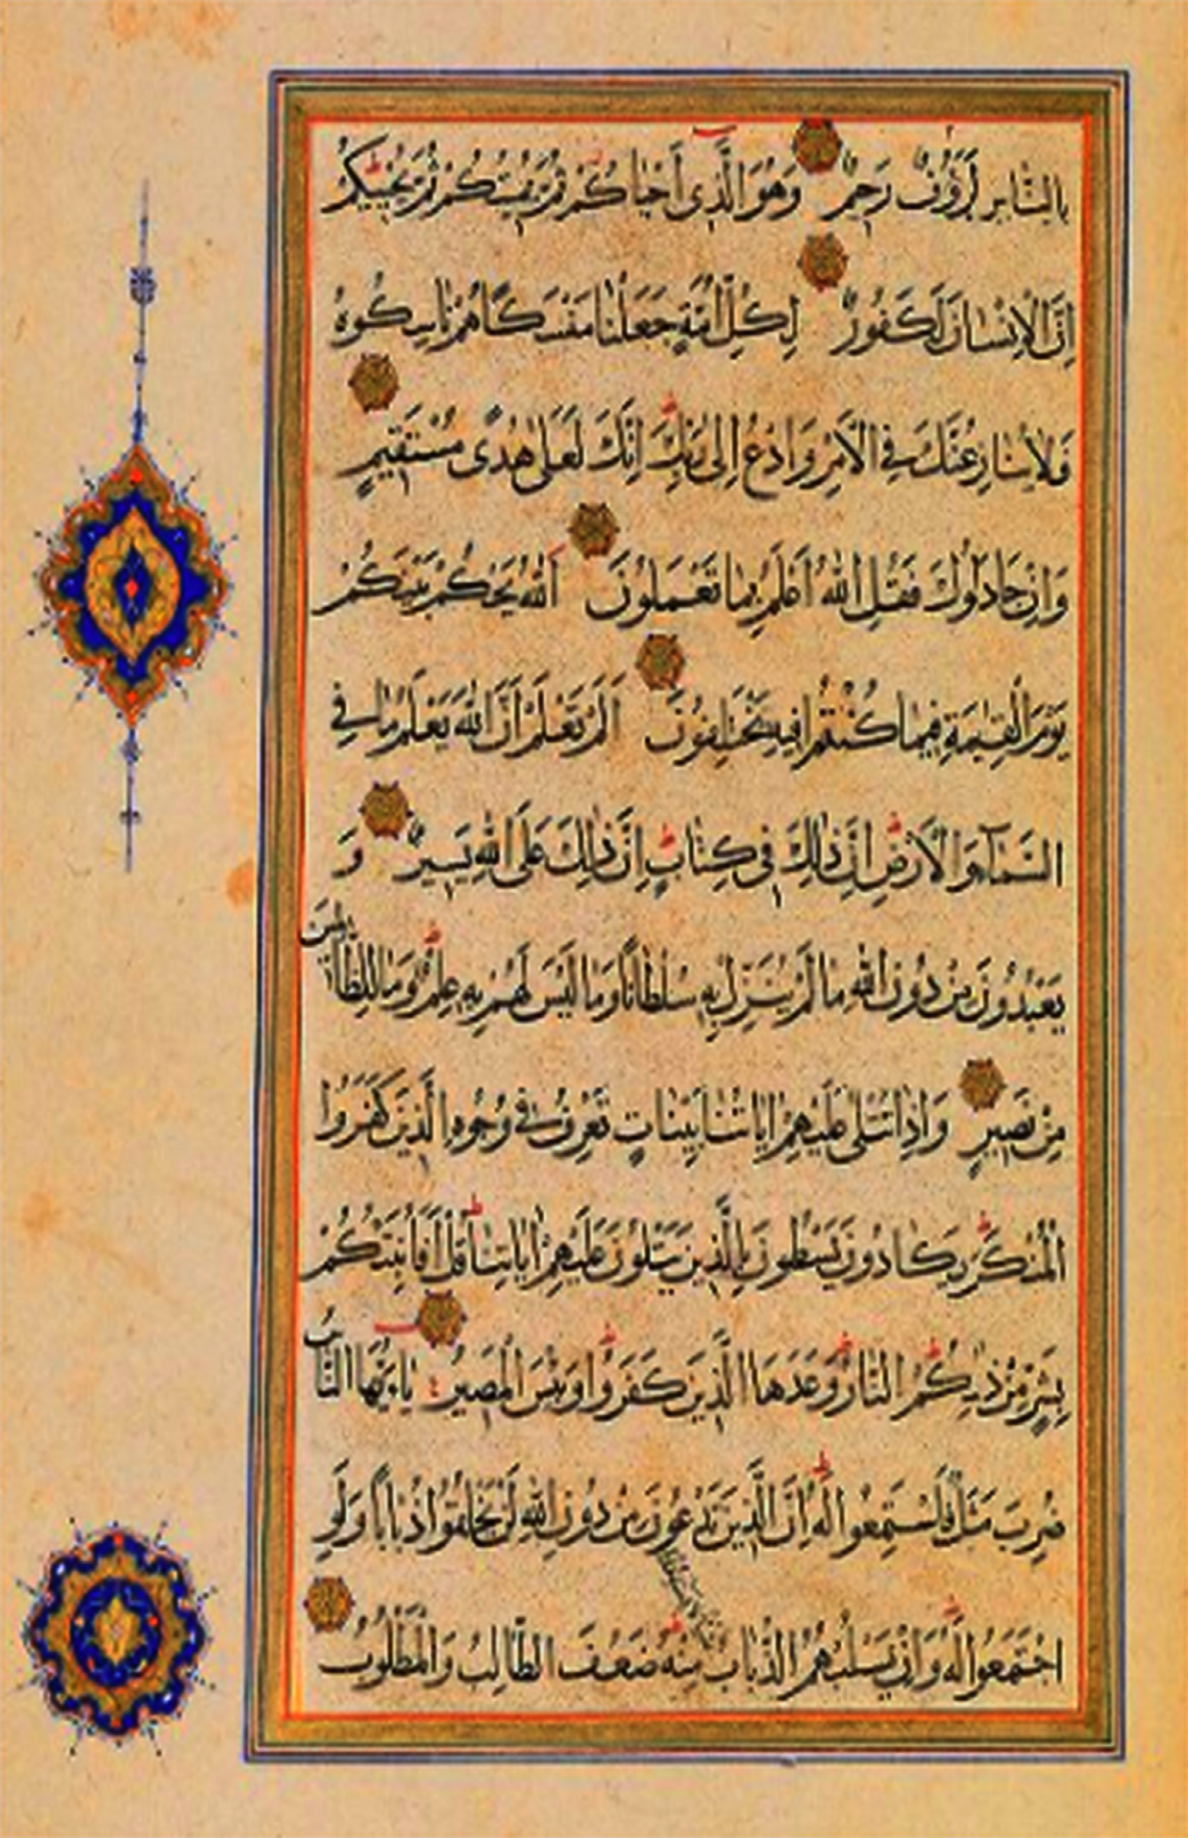 بِالنَّاسِ لَرَؤُفٌ رَحِيمٌ وَهُوَ الَّذِى أَحْيَاكُمْ ثُمَّ يُمِيتُكُمْ ثُمَّ يُحْيِيكُمْ
إِنَّ الْإِنْسَانَ لَكَفُورٌ لِكُلِّ أُمَّةٍ جَعَلْنَا مَنْسَكًا هُمْ نَاسِكُوهُ
فَلَا يُنَازِعُنَّكَ فِى الْأَمْرِ وَادْعُ إِلَى رَبِّكَ إِنَّكَ لَعَلَى هُدًى مُسْتَقِيمٍ
وَإِنْ جَادَلُوكَ فَقُلِ اللَّهُ أَعْلَمُ بِمَا تَعْمَلُونَ اَللَّهُ يَحْكُمُ بَيْنَكُمْ
يَوْمَ الْقِيٰمَةِ فِيمَا كُنْتُمْ فِيهِ تَخْتَلِفُونَ أَلَمْ تَعْلَمْ أَنَّ اللَّهَ يَعْلَمُ مَا فِى
السَّمَآءِ وَالْأَرْضِ إِنَّ ذٰلِكَ فِى كِتَابٍ إِنَّ ذٰلِكَ عَلَى اللَّهِ يَسِيرٌ وَ
يَعْبُدُونَ مِنْ دُونِ اللَّهِ مَا لَمْ يُنَزِّلْ بِهِ سُلْطَانًا وَمَا لَيْسَ لَهُمْ بِهِ عِلْمٌ وَمَا لِلظَّالِمِينَ
مِنْ نَصِيرٍ وَإِذَا تُتْلَى عَلَيْهِمْ اٰيَاتُنَا بَيِّنَاتٍ تَعْرِفُ فِى وُجُوهِ الَّذِينَ كَفَرُوا
الْمُنْكَرَ يَكَادُونَ يَسْطُونَ بِالَّذِينَ يَتْلُونَ عَلَيْهِمْ اٰيَاتِنَا قُلْ أَفَأُنَبِّئُكُمْ
بِشَرٍّ مِنْ ذٰلِكُمُ النَّارُ وَعَدَهَا اللَّهُ الَّذِينَ كَفَرُوا وَبِئْسَ الْمَصِيرُ يَاءَيُّهَا النَّاسُ
ضُرِبَ مَثَلٌ فَاسْتَمِعُوا لَهُ إِنَّ الَّذِينَ تَدْعُونَ مِنْ دُونِ اللَّهِ لَنْ يَخْلُقُوا ذُبَابًا وَلَوِ
اجْتَمَعُوا لَهُ وَإِنْ يَسْلُبْهُمُ الذُّبَابُ مِنْهُ ضَعُفَ الطَّالِبُ وَالْمَطْلُوبُ